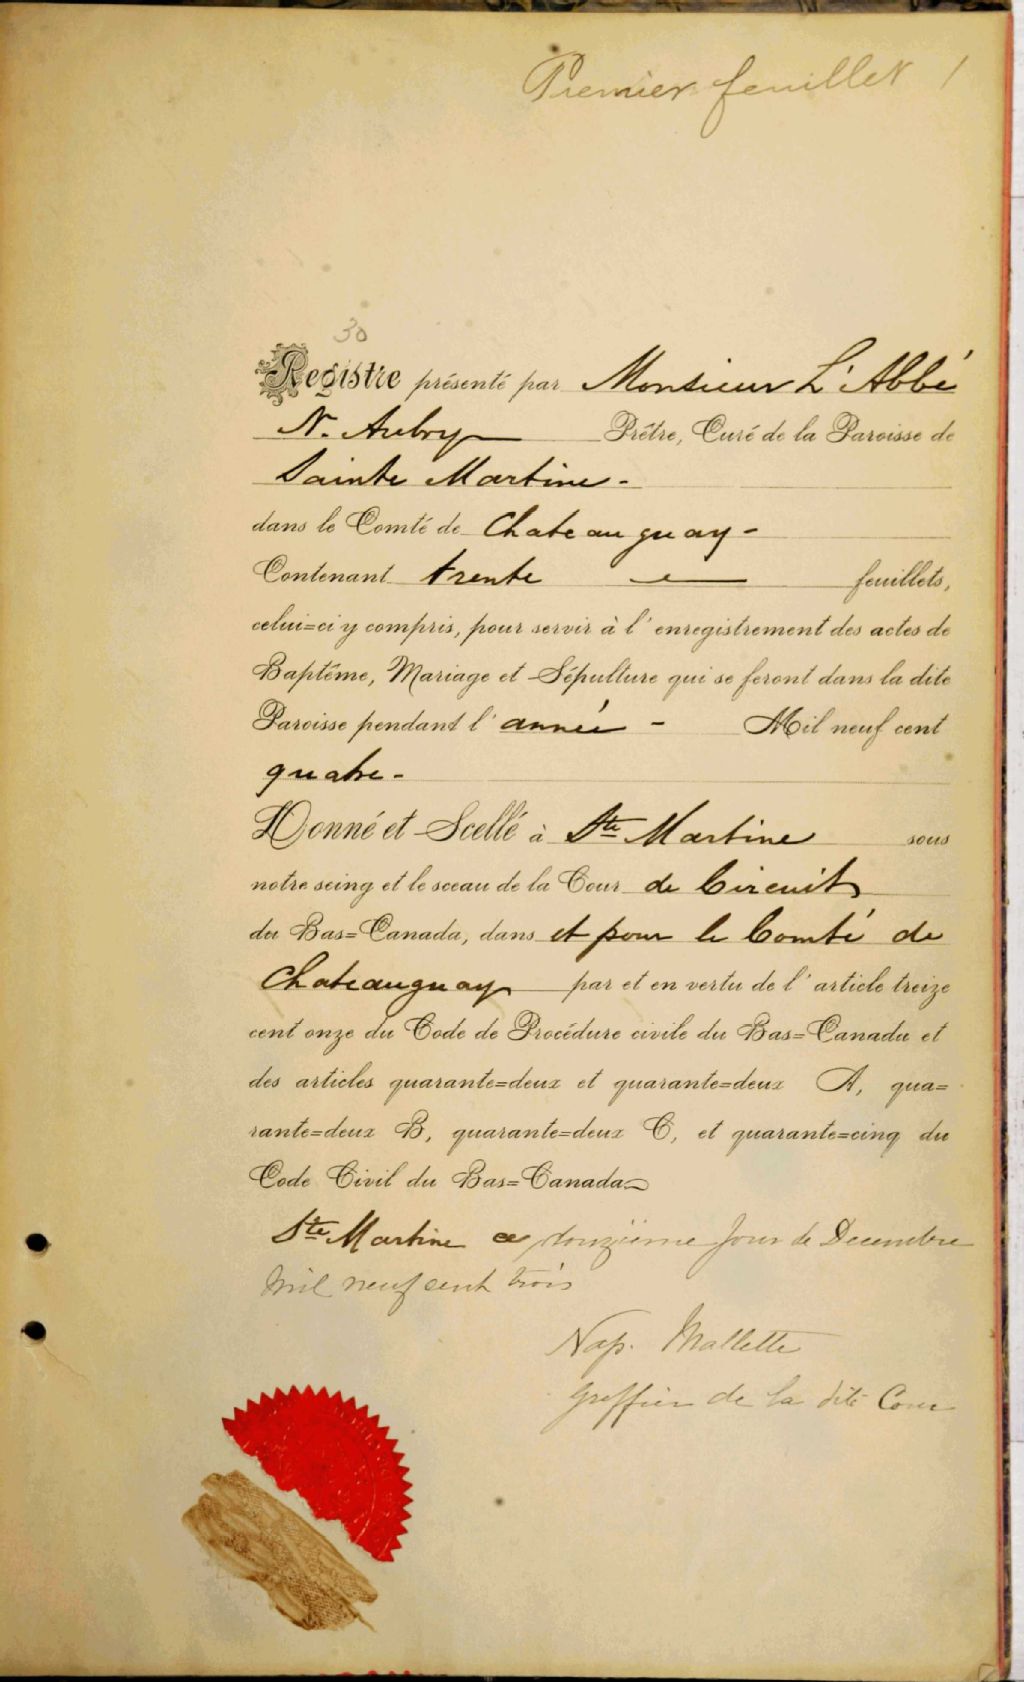 Premier feuillet 1
30
Registre présenté par Monsieur L'Abbé
N. Aubry Prêtre, Curé de la Paroisse de
Sainte Martine -
dans le Comté de Chateauguay -
Contenant trente feuillets,
celui=ci y compris, pour servir à l'enregistrement des actes de
Baptême, Mariage et Sépulture qui se feront dans la dite
Paroisse pendant l'année - Mil neuf cent
quatre -
Donné et Scellé à Ste Martine sous
notre seing et le sceau de la Cour de Circuit
du Bas=Canada, dans et pour le Comté de
Chateauguay par et en vertu de l'article treize
cent onze du Code de Procédure civile du Bas=Canada et
des articles quarante=deux et quarante=deux A, qua=
rante=deux B, quarante=deux C, et quarante=cinq du
Code Civil du Bas=Canada
Ste Martine ce douzième Jour de Decembre
Mil neuf cent trois
Nap. Mallette
Greffier de la dite Cour